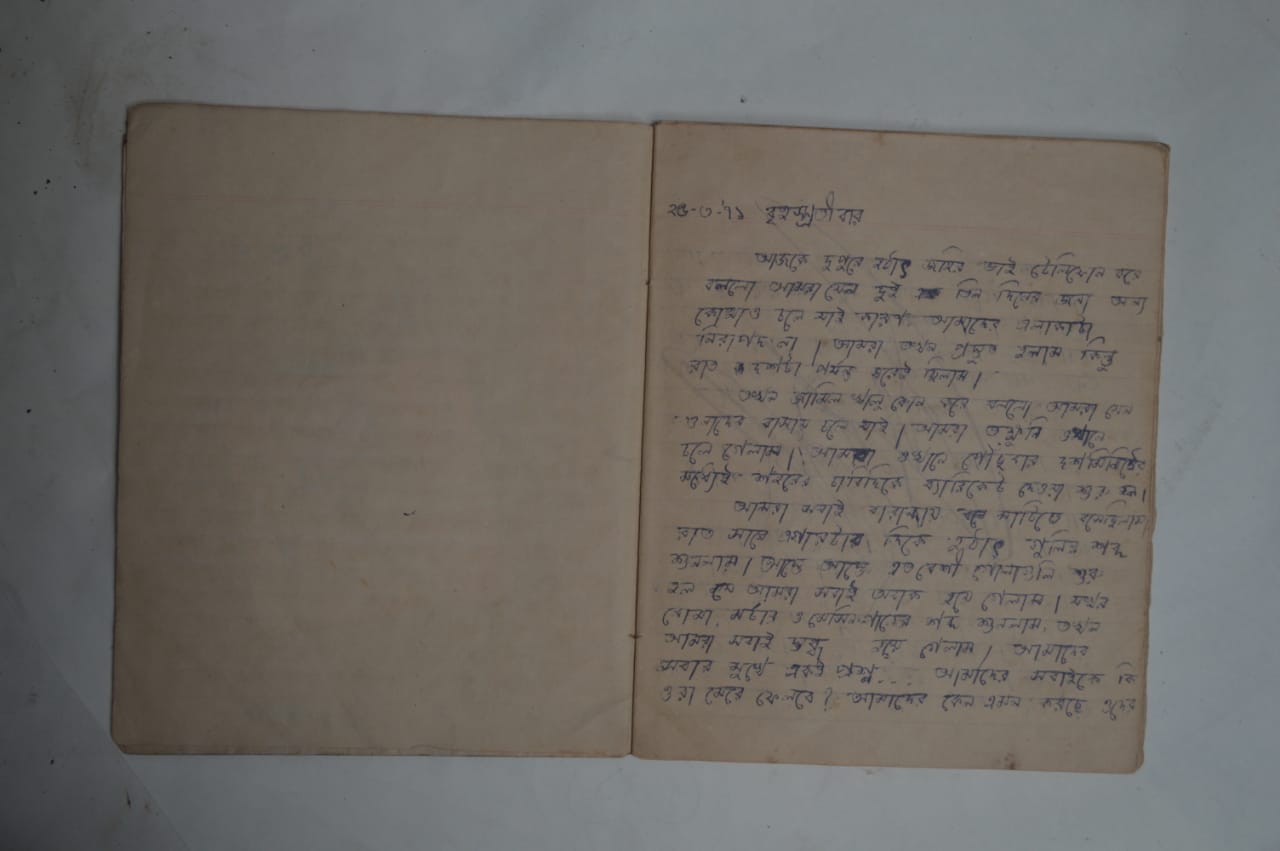 ২৫-৩-৭১ বৃহস্প্রতীবার
আজকে দুপুরে হঠাৎ জহির ভাই টেলিফোন করে
বললো আমরা যেন দুই তিন দিনের জন্য অন্য
কোথাও চলে যাই কারণ আমাদের এলাকাটা
নিরাপদ না। আমরা তখন প্রস্তুত হলাম কিন্তু
রাত দশটা পর্যন্ত ঘরেই ছিলাম।
তখন জামিল খালু ফোন করে বললো আমরা যেন
ওনাদের বাসায় চলে যাই। আমরা তক্ষুনি ওখানে
চলে গেলাম। আমরা ওখানে পৌছুবার দশমিনিটের
মধ্যেই শহরের চারিদিকে ব্যারিকেট দেওয়া শুরু হল।
আমরা সবাই বারান্দায় মাটিতে বসেছিলাম
রাত সাড়ে এগারটার দিকে হঠাৎ গুলির শব্দ
শুনলাম। আস্তে আস্তে এত বেশী গোলাগুলি শুরু
হল যে আমরা সবাই অবাক হয়ে গেলাম। যখন
বোমা, মর্টার ও মেসিনগানের শব্দ শুনলাম, তখন
আমরা সবাই স্তব্ধ হয়ে গেলাম। আমাদের
সবার মুখে একই প্রশ্ন.... আমাদের সবাইকে কি
ওরা মেরে ফেলবে? আমাদের কেন এমন করছে ওদের